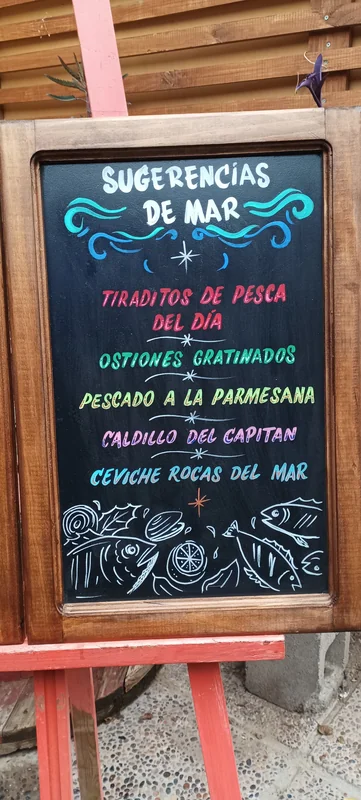 SUGERENCÍAS
DE MAR
TIRADITOS DE PESCA
DEL DÍA
OSTIONES GRATINADOS
PESCADO A LA PARMESANA
CALDILLO DEL CAPITAN
CEVICHE ROCAS DEL MAR